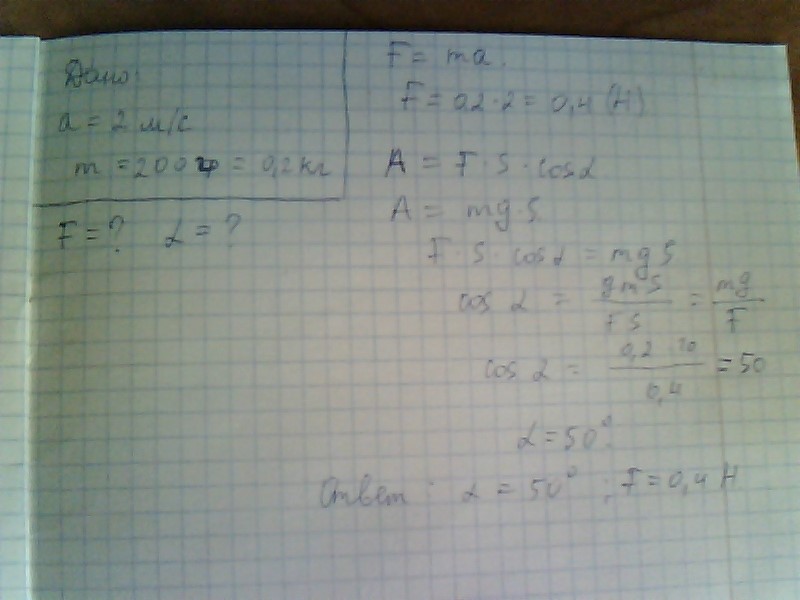 Дано:
a = 2 м/с
m = 200 г = 0,2 кг
F = ? α = ?
F = ma.
F = 0,2 · 2 = 0,4 (Н)
A = F · S · cos α
A = mg · S
F · S · cos α = mg S
cos α = gm·S / FS = mg / F
cos α = 0,2 · 10 / 0,4 = 50
α = 50°.
Ответ: α = 50° ; F = 0,4 Н